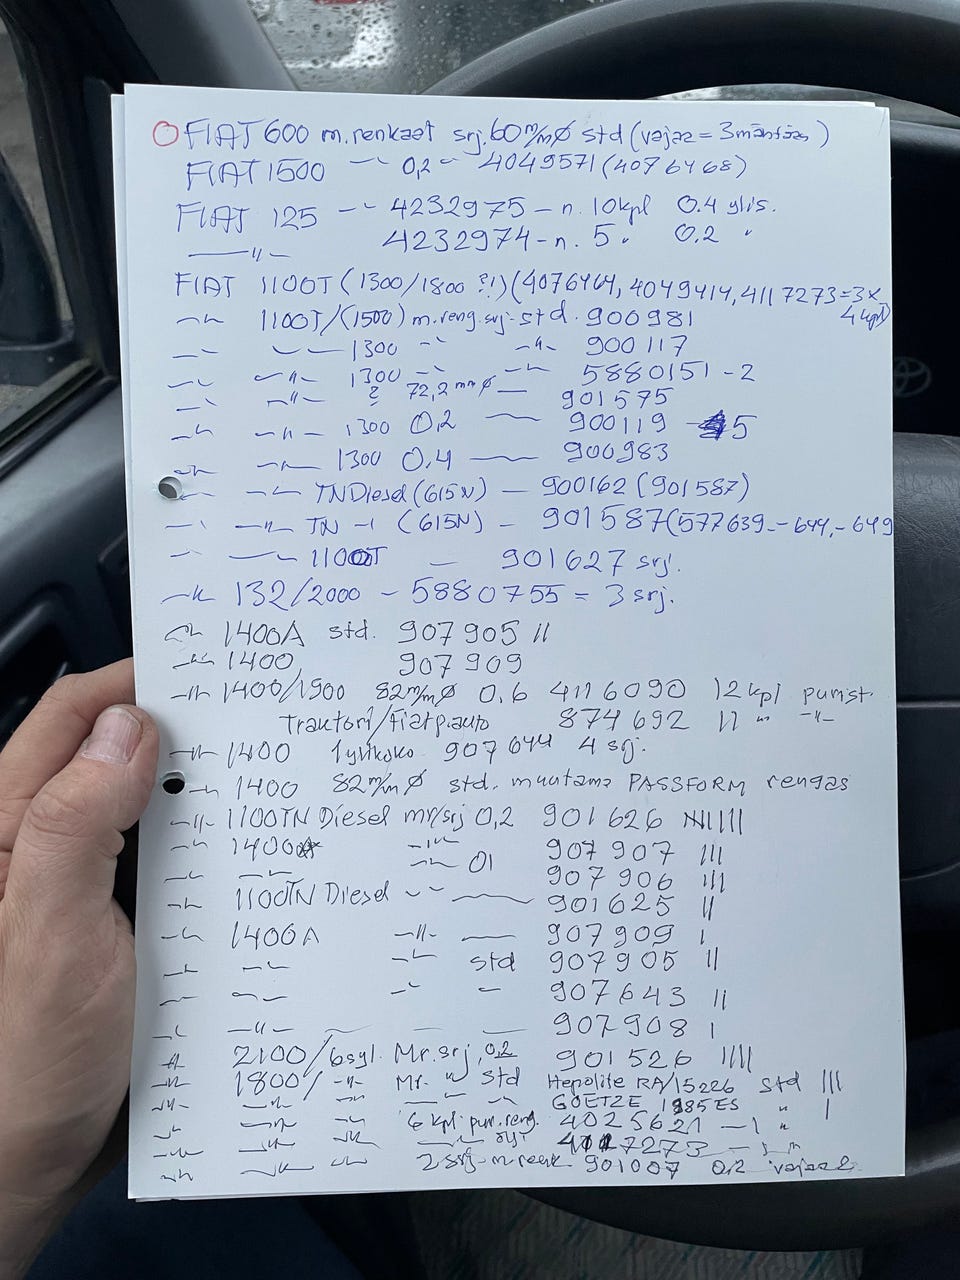 FIAT 600 m.renkaat srj. 60 m/m Ø std (vajaa = 3 mäntään)
FIAT 1500 -"- 0,2 - 4049571 (4076468)
FIAT 125 -"- 4232975 - n. 10kpl 0.4 ylis.
-"- 4232974 - n. 5 " 0.2 "
FIAT 1100T (1300/1800 ?!) (4076464, 4049414, 4117273 = 3x 4 kpl)
-"- 1100T/(1500) m.reng.srj. std. 900981
-"- -"- 1300 -"- -"- 900117
-"- -"- 1300 -"- -"- 5880151 - 2
-"- -"- ? 72,2 mm Ø - 901575
-"- -"- 1300 0,2 - 900119 - 5
-"- -"- 1300 0,4 - 900983
-"- -"- TN Diesel (615N) - 900162 (901587)
-"- -"- TN -"- (615N) - 901587 (577639 - - 644, - 649
-"- - 1100T - 901627 srj.
-"- 132/2000 - 5880755 = 3 srj.
-"- 1400A std. 907905 II
-"- 1400, 907909
-"- 1400/1900 82 m/m Ø 0,6 4116090 12 kpl purist.
Traktori/Fiat p.auto 874692 11 " -"-
-"- 1400 1 ylikoko 907644 4 srj.
-"- 1400 82 m/m Ø std. muutama PASSFORM rengas
-"- 1100TN Diesel mr/srj 0,2 901626 IIIIII
-"- 1400A -"- 907907 III
-"- -"- -"- 01 907906 III
-"- 1100TN Diesel -"- - 901625 II
-"- 1400A -"- - 907909 I
-"- -"- -"- std 907905 II
-"- -"- -"- - 907643 II
-"- -"- - - - 907908 I
-"- 2100/6syl. Mr.srj 0,2 901526 IIII
-"- 1800/ -"- Mr. " std Hepolite RA/15226 std III
-"- -"- -"- -"- -"- GOETZE 1985ES " I
-"- -"- -"- 6 kpl pur.reng. 4025621 - 1 "
-"- -"- -"- -"- 4117273 - "
-"- -"- -"- 2 srj - 901007 0,2 vajaa